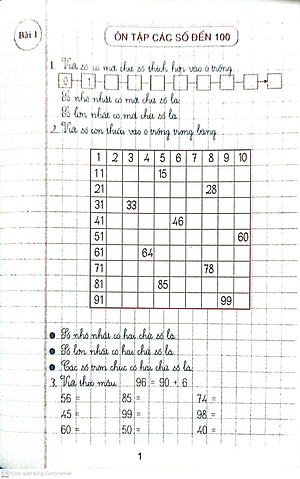 Bài 1
ÔN TẬP CÁC SỐ ĐẾN 100
1. Viết số có một chữ số thích hợp vào ô trống.
0 1
Số nhỏ nhất có một chữ số là:
Số lớn nhất có một chữ số là:
2. Viết số còn thiếu vào ô trống trong bảng.
1 2 3 4 5 6 7 8 9 10
11 15
21 28
31 33
41 46
51 60
61 64
71 78
81 85
91 99
Số nhỏ nhất có hai chữ số là:
Số lớn nhất có hai chữ số là:
Các số tròn chục có hai chữ số là:
3. Viết theo mẫu 96 = 90 + 6
56 = 85 = 74 =
45 = 99 = 98 =
60 = 50 = 40 =
1
Được quét bằng CamScanner